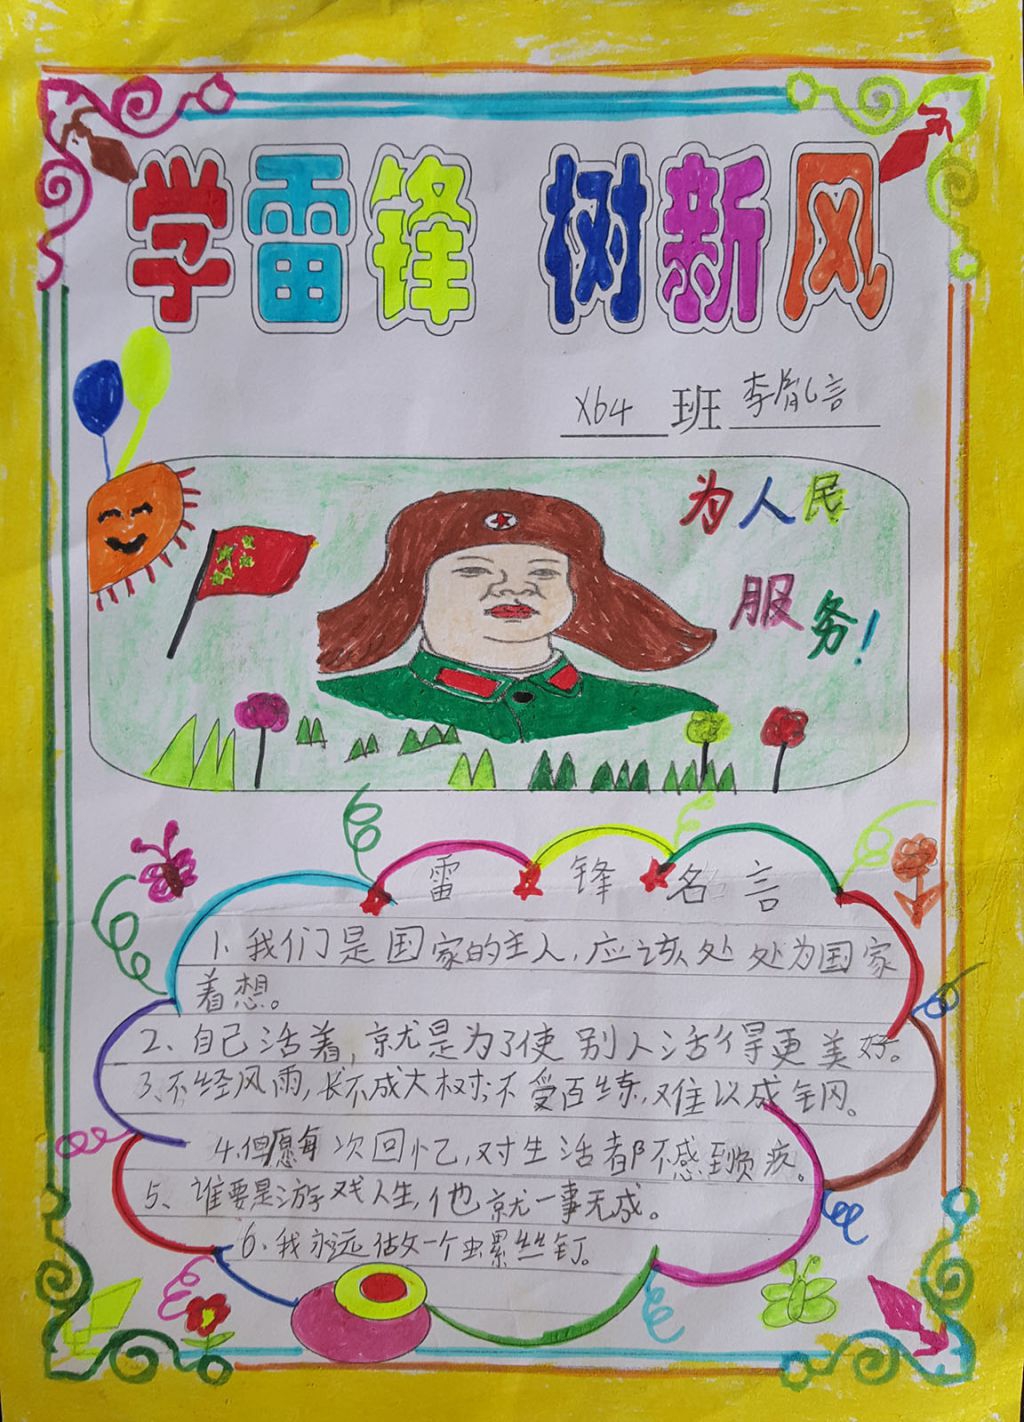 学雷锋 树新风
X64 班 李胤言
为人民
服务!
雷锋名言
1. 我们是国家的主人,应该处处为国家
着想。
2、自己活着,就是为了使别人活得更美好。
3、不经风雨,长不成大树;不受百练,难以成钢。
4、但愿每次回忆,对生活都不感到负疚。
5、谁要是游戏人生,他就一事无成。
6、我永远做一个螺丝钉。